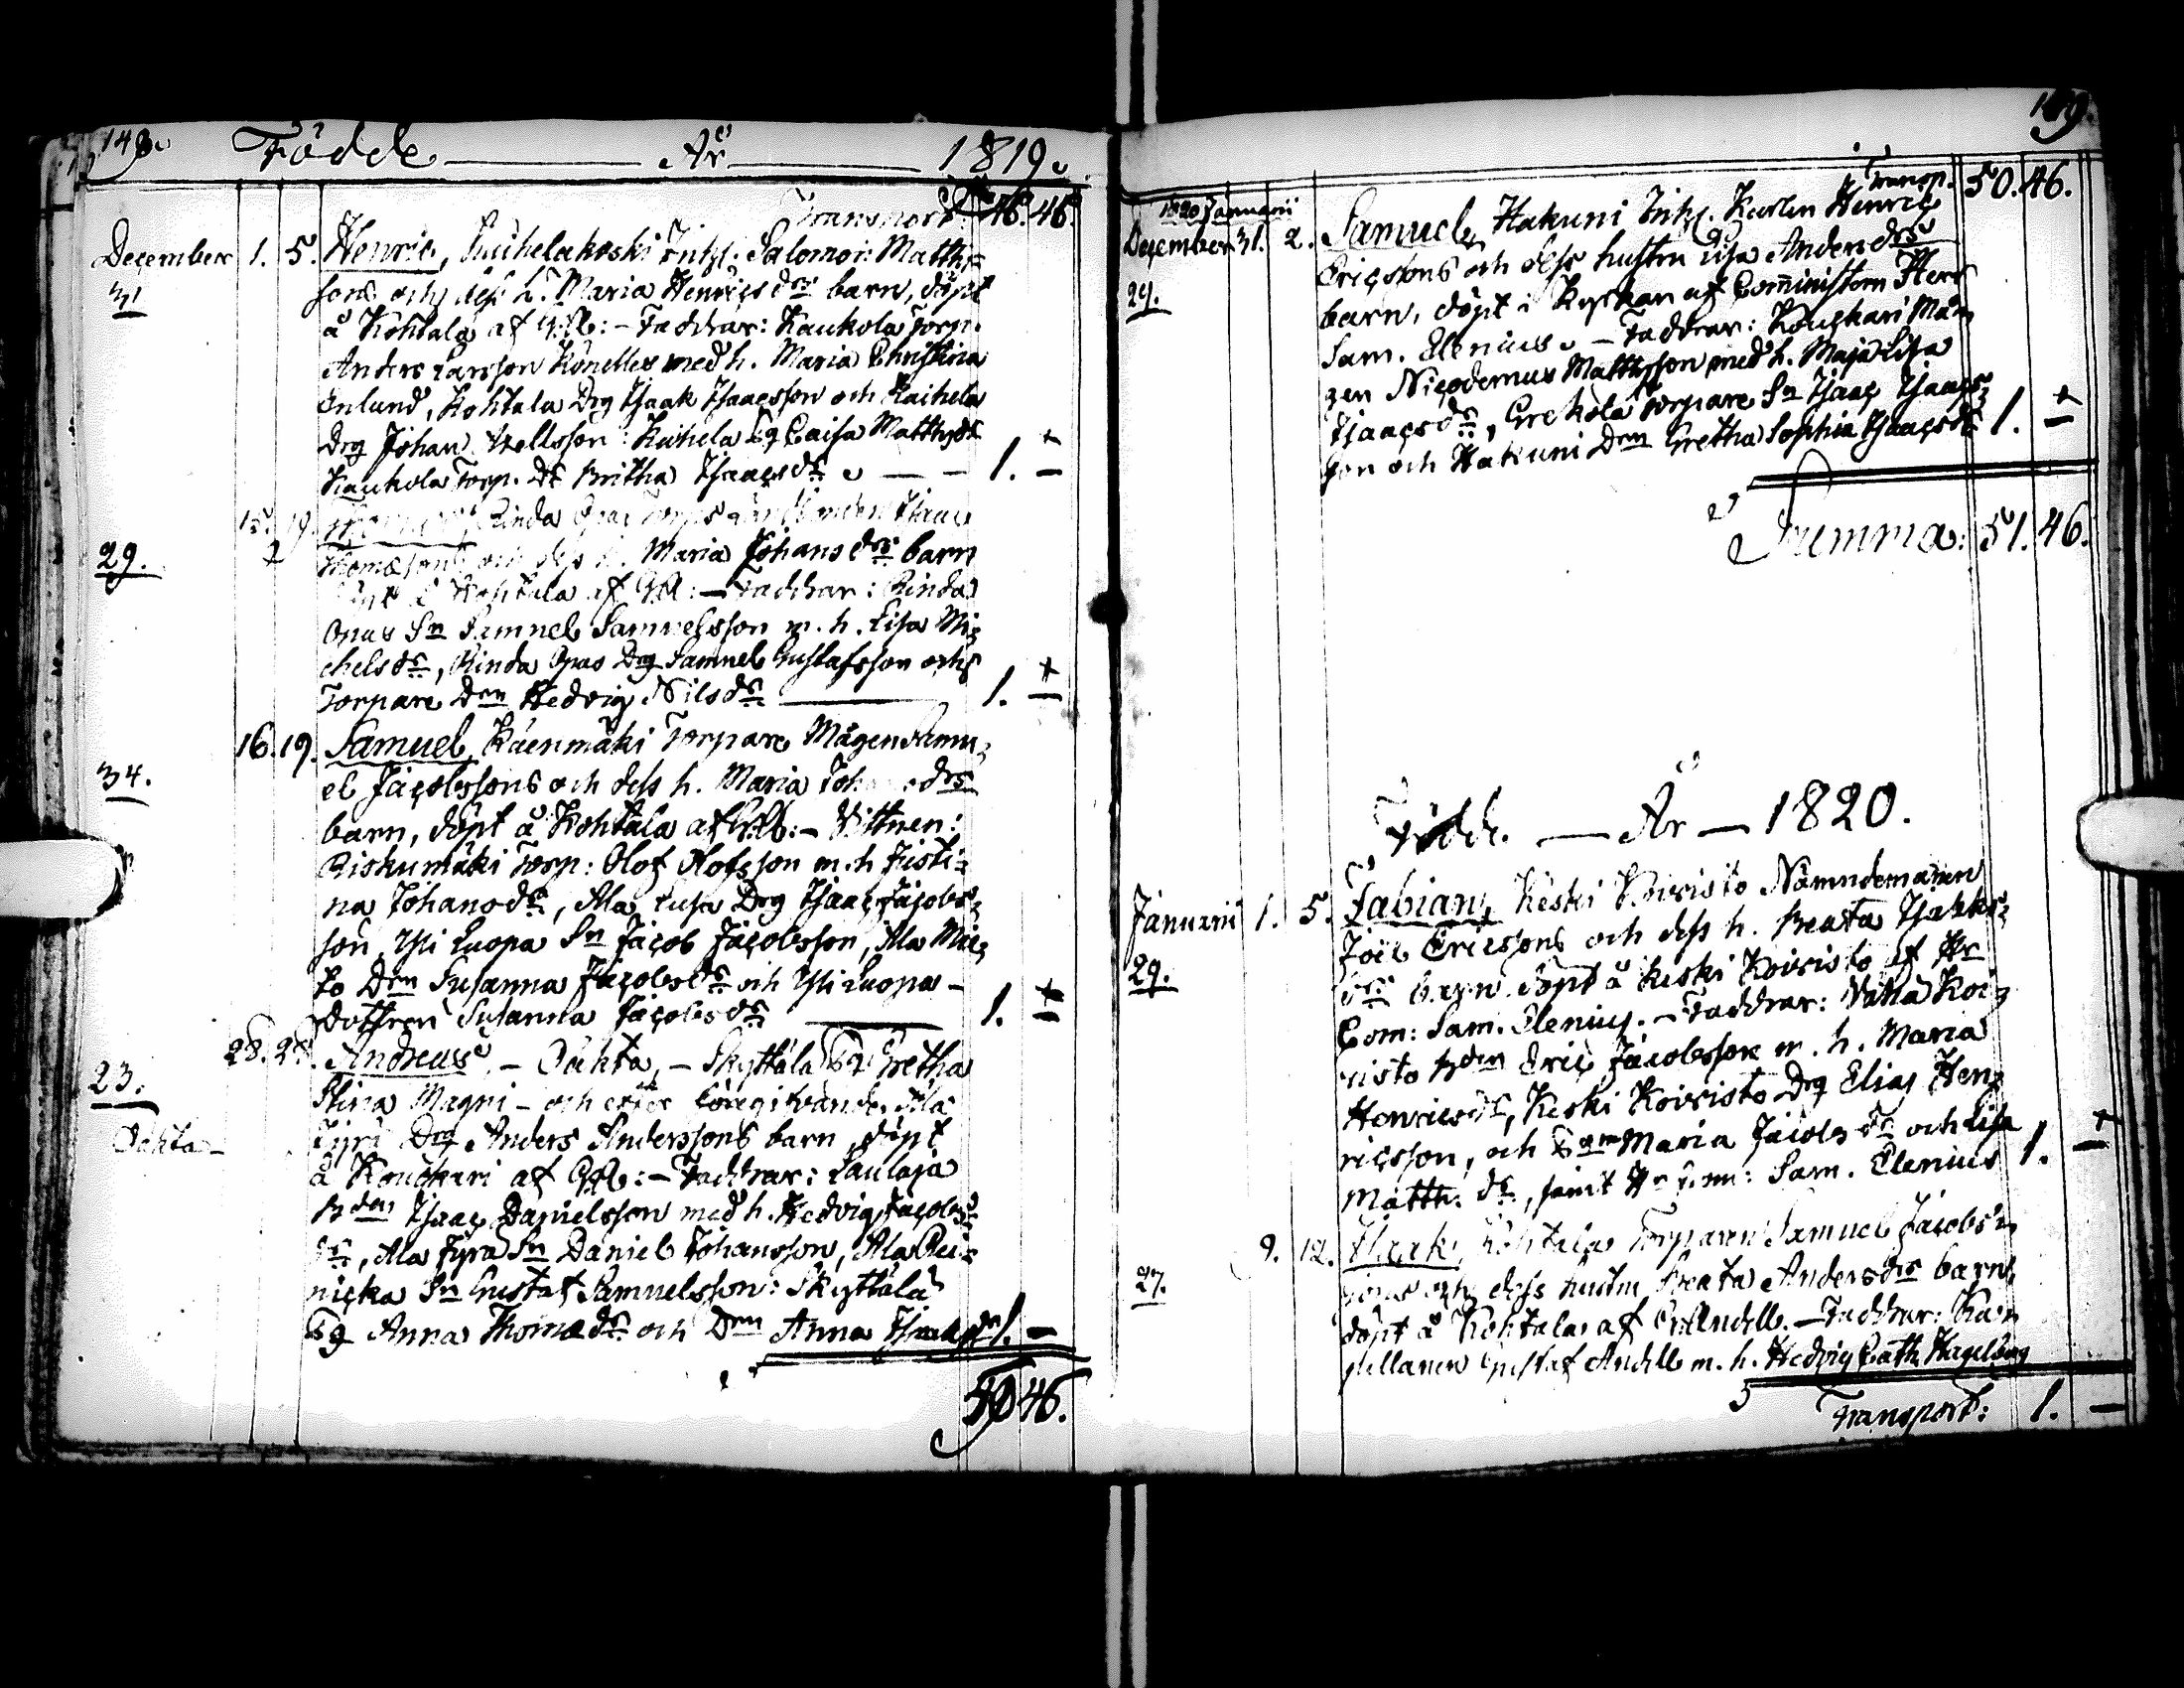 148. Födde — År — 1819.
Transport: 46. 46.
December 1. 5. Henric, Intzl. Salomon Matths-
31
sons och dess h. Maria Henricsdrs barn, döpt
å Kohtala af – Faddrar: Kaukola Torp.
Anders Larsson Könelles med h. Maria Christina
Enlund, Kohtala Drg Isaak Isaacsson och Raihela
Drg Johan : Raihela Pg Caisa Matthsdr
Kaukola Torp. Dr Britha Isaacsdr — 1. —
19. Rinda
29.
Thomæsons och dess h. Maria Johansdrs barn
Kohtala af – Faddrar: Rinda
Opas Sn Samuel Samuelsson m. h. Lisa Mi-
chelsdr, Rinda Opas Drg Samuel Gustafsson och
Torpare Dren Hedvig Nilsdr — 1. —
16. 19. Samuel, Käenmäki Torpare Mågen Samu-
34.
el Jacobssons och dess h. Maria Joh drs
barn, döpt å Kohtala af – Vittnen:
Riskumäki Torp: Olof Olofsson m. h Justi-
na Johansdr, Ala Luopa Drg Isaac Jacobs-
son, Yli Luopa Sn Jacob Jacobsson, Ala
to Dren Susanna Jacobsdr och Yli Luopa –
dottren Susanna Jacobsdr — 1. —
28. Andreas, – Oähta, – Skyttälä Pg Gretha
23.
Stina Magni – och Ala
Oähta –
Jyrä Drg Anders Anderssons barn, döpt
å Kouckari af – Faddrar: Laulaja
Bden Isaac Danielsson med h. Hedvig Jacobs-
dr, Ala Jyrä Sn Daniel Johansson, Ala Rei-
nicka Sn Gustaf Samuelsson: Skyttälä
Pg Anna Thomædr och Dren Anna 1. —
50 46.
149.
Transp. 50. 46.
1820 Januarii
December 31. 2. Samuel, Hakuni Intzl. Karlen Henric
29.
Ericssons och dess hustru Lisa Andersdrs
barn, döpt i Kyrkan af Comministern Herr
Sam. Elenius. – Faddrar: Kouckari Må-
gen Nicodemus Mattsson med h. Maja Lisa
Isaacsdr, Grekola Torpare Sn Isaac Isaacs-
son och Hakuni Dren Gretha Sophia Isaacsdr 1. —
Summa: 51. 46.
Födde — År — 1820.
Januarii 1. 5. Fabian, Keski Koivisto Nämndemannen
29.
Joel Ericssons och dess h. Beata Isaks-
drs barn döpt å Keski Koivisto af Hr
Com: Sam. Elenius. – Faddrar: Vana Koi-
visto Bden Eric Jacobsson m. h. Maria
Henricsdr, Keski Koivisto Drg Elias Hen-
ricsson, och Maria Jacobsdr och Lisa
Matth. dr, samt Hr Com: Sam. Elenius 1. —
9. 12. Isaak, Kohtala Torparen Samuel Jacobs-
27.
sons och dess hustru Beata Andersdrs barn,
döpt å Kohtala af – Faddrar: Ka-
pellanen Gustaf m. h. Hedvig Cath. Hagelberg
Transport: 1. —